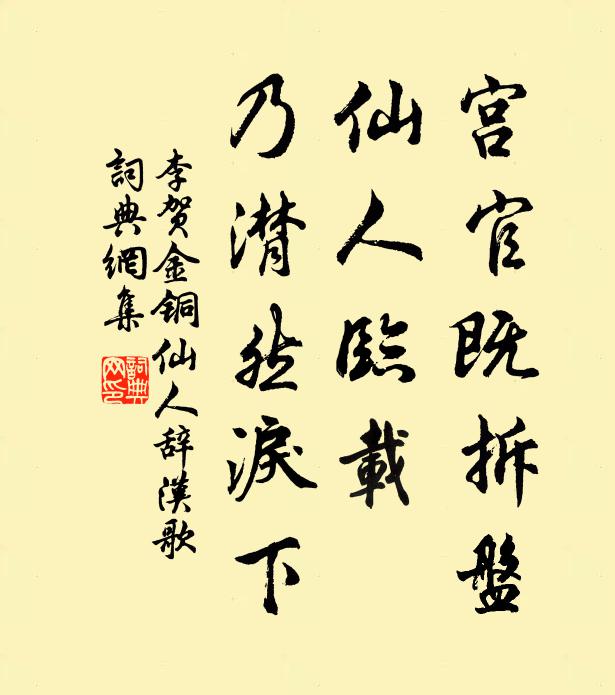 宫官既拆盤
仙人臨載
乃潸然淚下
李贺金铜仙人辞漢歌
詞典網集
詞典
网印